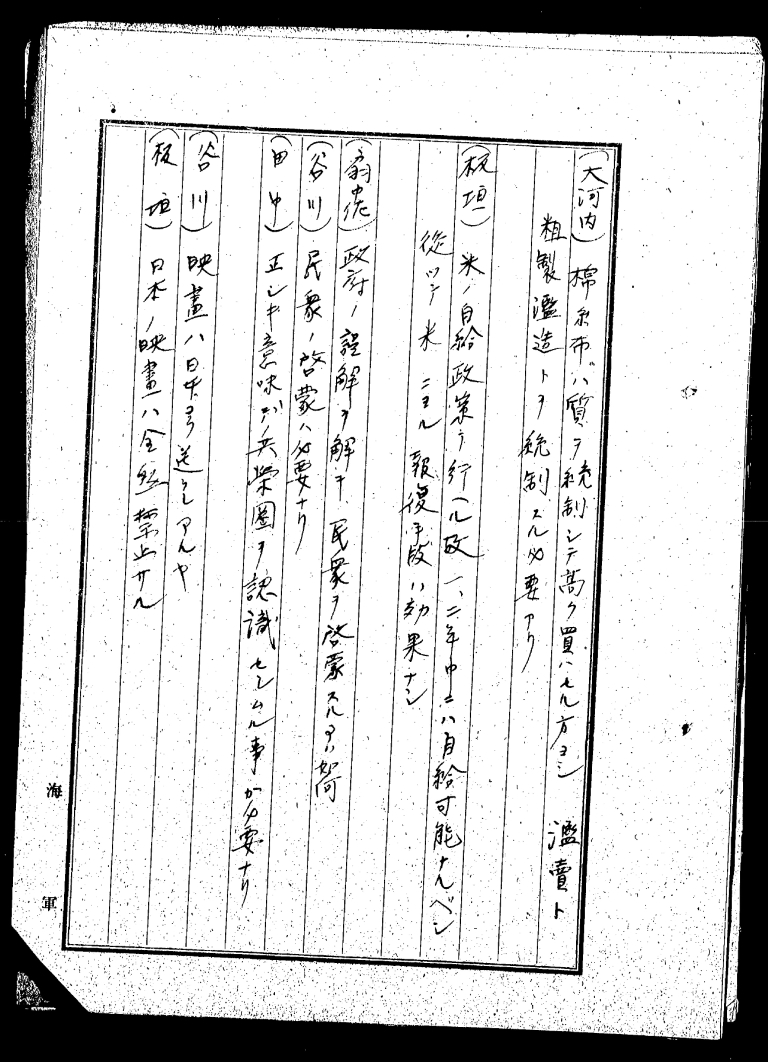 (大河内) 棉糸布ハ質ヲ統制シテ高ク買ハセル方ヨシ 濫賣ト
粗製濫造トヲ統制スル必要アリ
(板垣) 米ノ自給政策ヲ行ヘル故一、二年中ニハ自給可能ナルベシ
從ツテ米ニヨル報復手段ハ効果ナシ
政府ノ誤解ヲ解キ民衆ヲ啓蒙スルコト如何
(谷川) 民衆ノ啓蒙ハ必要ナリ
(田中) 正シキ意味デノ共榮圏ヲ認識セシムル事が必要ナリ
(谷川) 映畫ハ日本ヨリ送ラレアルヤ
(板垣) 日本ノ映畫ハ全然禁止サル
海軍